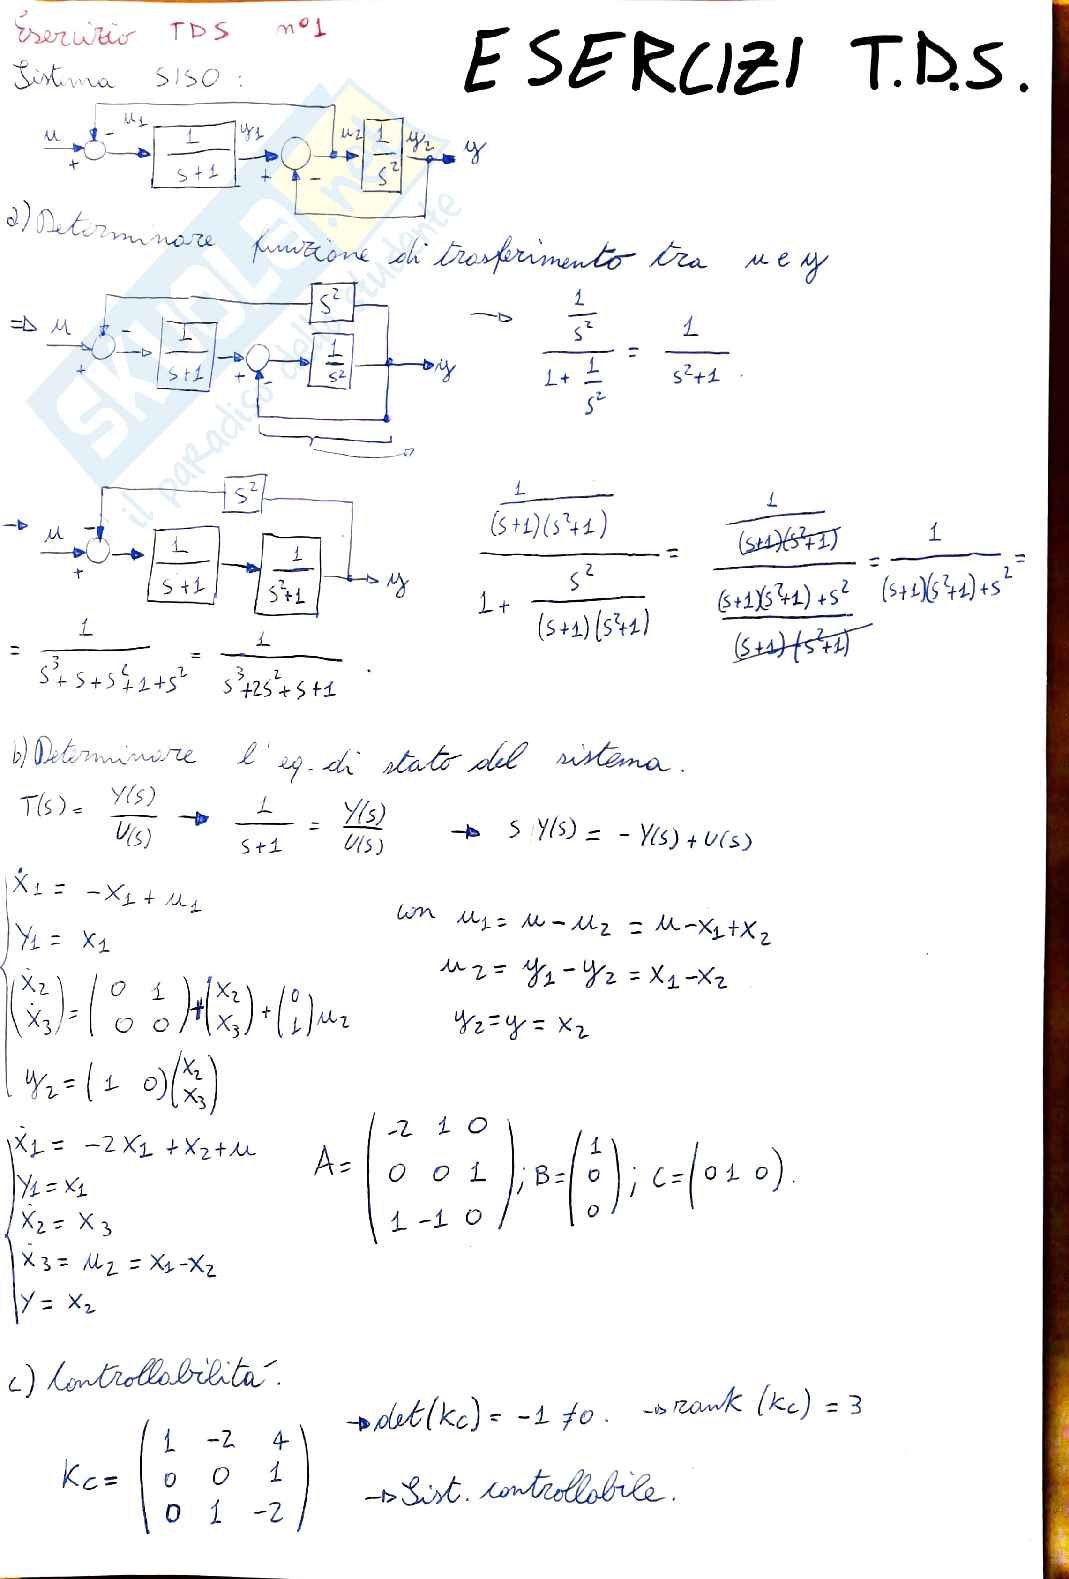 Esercizio TDS n°1
ESERCIZI T.D.S.
Sistema SISO:
u + - u1 1/(s+1) y1 + - u2 1/s² y2 y
a) Determinare funzione di trasferimento tra u e y
⇒ u + - 1/(s+1) + - 1/s² s² y → (1/s²)/(1+1/s²) = 1/(s²+1).
→ u + - 1/(s+1) 1/(s²+1) s² y
(1/((s+1)(s²+1)))/(1+s²/((s+1)(s²+1))) = (1/((s+1)(s²+1)))/(((s+1)(s²+1)+s²)/((s+1)(s²+1))) = 1/((s+1)(s²+1)+s²) =
= 1/(s³+s+s²+1+s²) = 1/(s³+2s²+s+1).
b) Determinare l'eq. di stato del sistema.
T(s) = Y(s)/U(s) → 1/(s+1) = Y(s)/U(s) → s Y(s) = -Y(s)+U(s)
ẋ1 = -x1+u1
y1 = x1
(ẋ2 ẋ3) = (0 1 0 0)+(x2 x3)+(0 1)u2
y2 = (1 0)(x2 x3)
con u1 = u-u2 = u-x1+x2
u2 = y1-y2 = x1-x2
y2=y= x2
ẋ1 = -2x1+x2+u
y1=x1
ẋ2 = x3
ẋ3 = u2 = x1-x2
y = x2
A= (-2 1 0
0 0 1
1 -1 0); B=(1 0 0); C=(0 1 0).
c) Controllabilità.
Kc= (1 -2 4
0 0 1
0 1 -2)
→ det(Kc) = -1 ≠0. → rank (Kc) = 3
→ Sist. controllabile.
SKUOLA.net
il paradiso dello studente